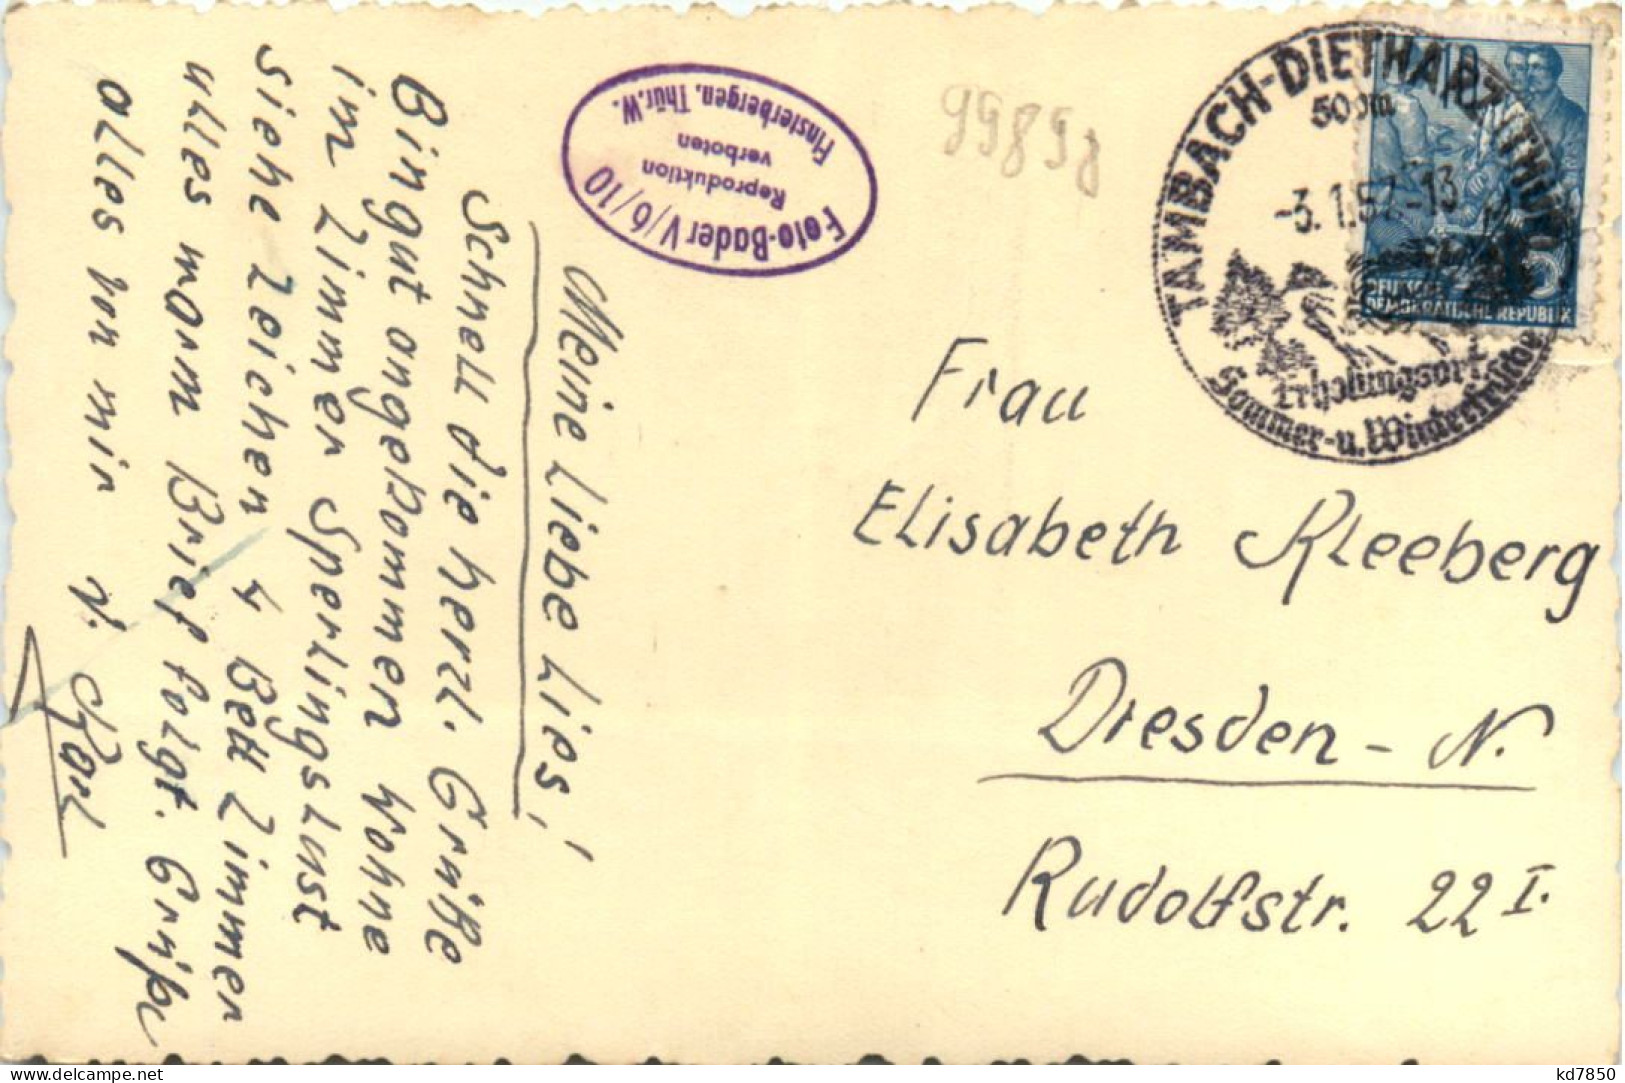 Meine Liebe Lies!
Schnell die herzl. Grüße
Bin gut angekommen wohne
im Zimmer Sperlingslust
siehe Zeichen 4 Bett Zimmer
alles warm Brief folgt. Grüße
alles von mir
V. Karl
Foto-Bader V/6/10
Reproduktion
verboten
Finsterbergen, Thür.W.
99898
TAMBACH-DIETHARZ (THÜR)
500m
-3.1.57.-13
Erholungsort
Sommer- u. Winterfrische
DEUTSCHE
DEMOKRATISCHE REPUBLIK
Frau
Elisabeth Kleeberg
Dresden - N.
Rudolfstr. 22 I.
kd7850